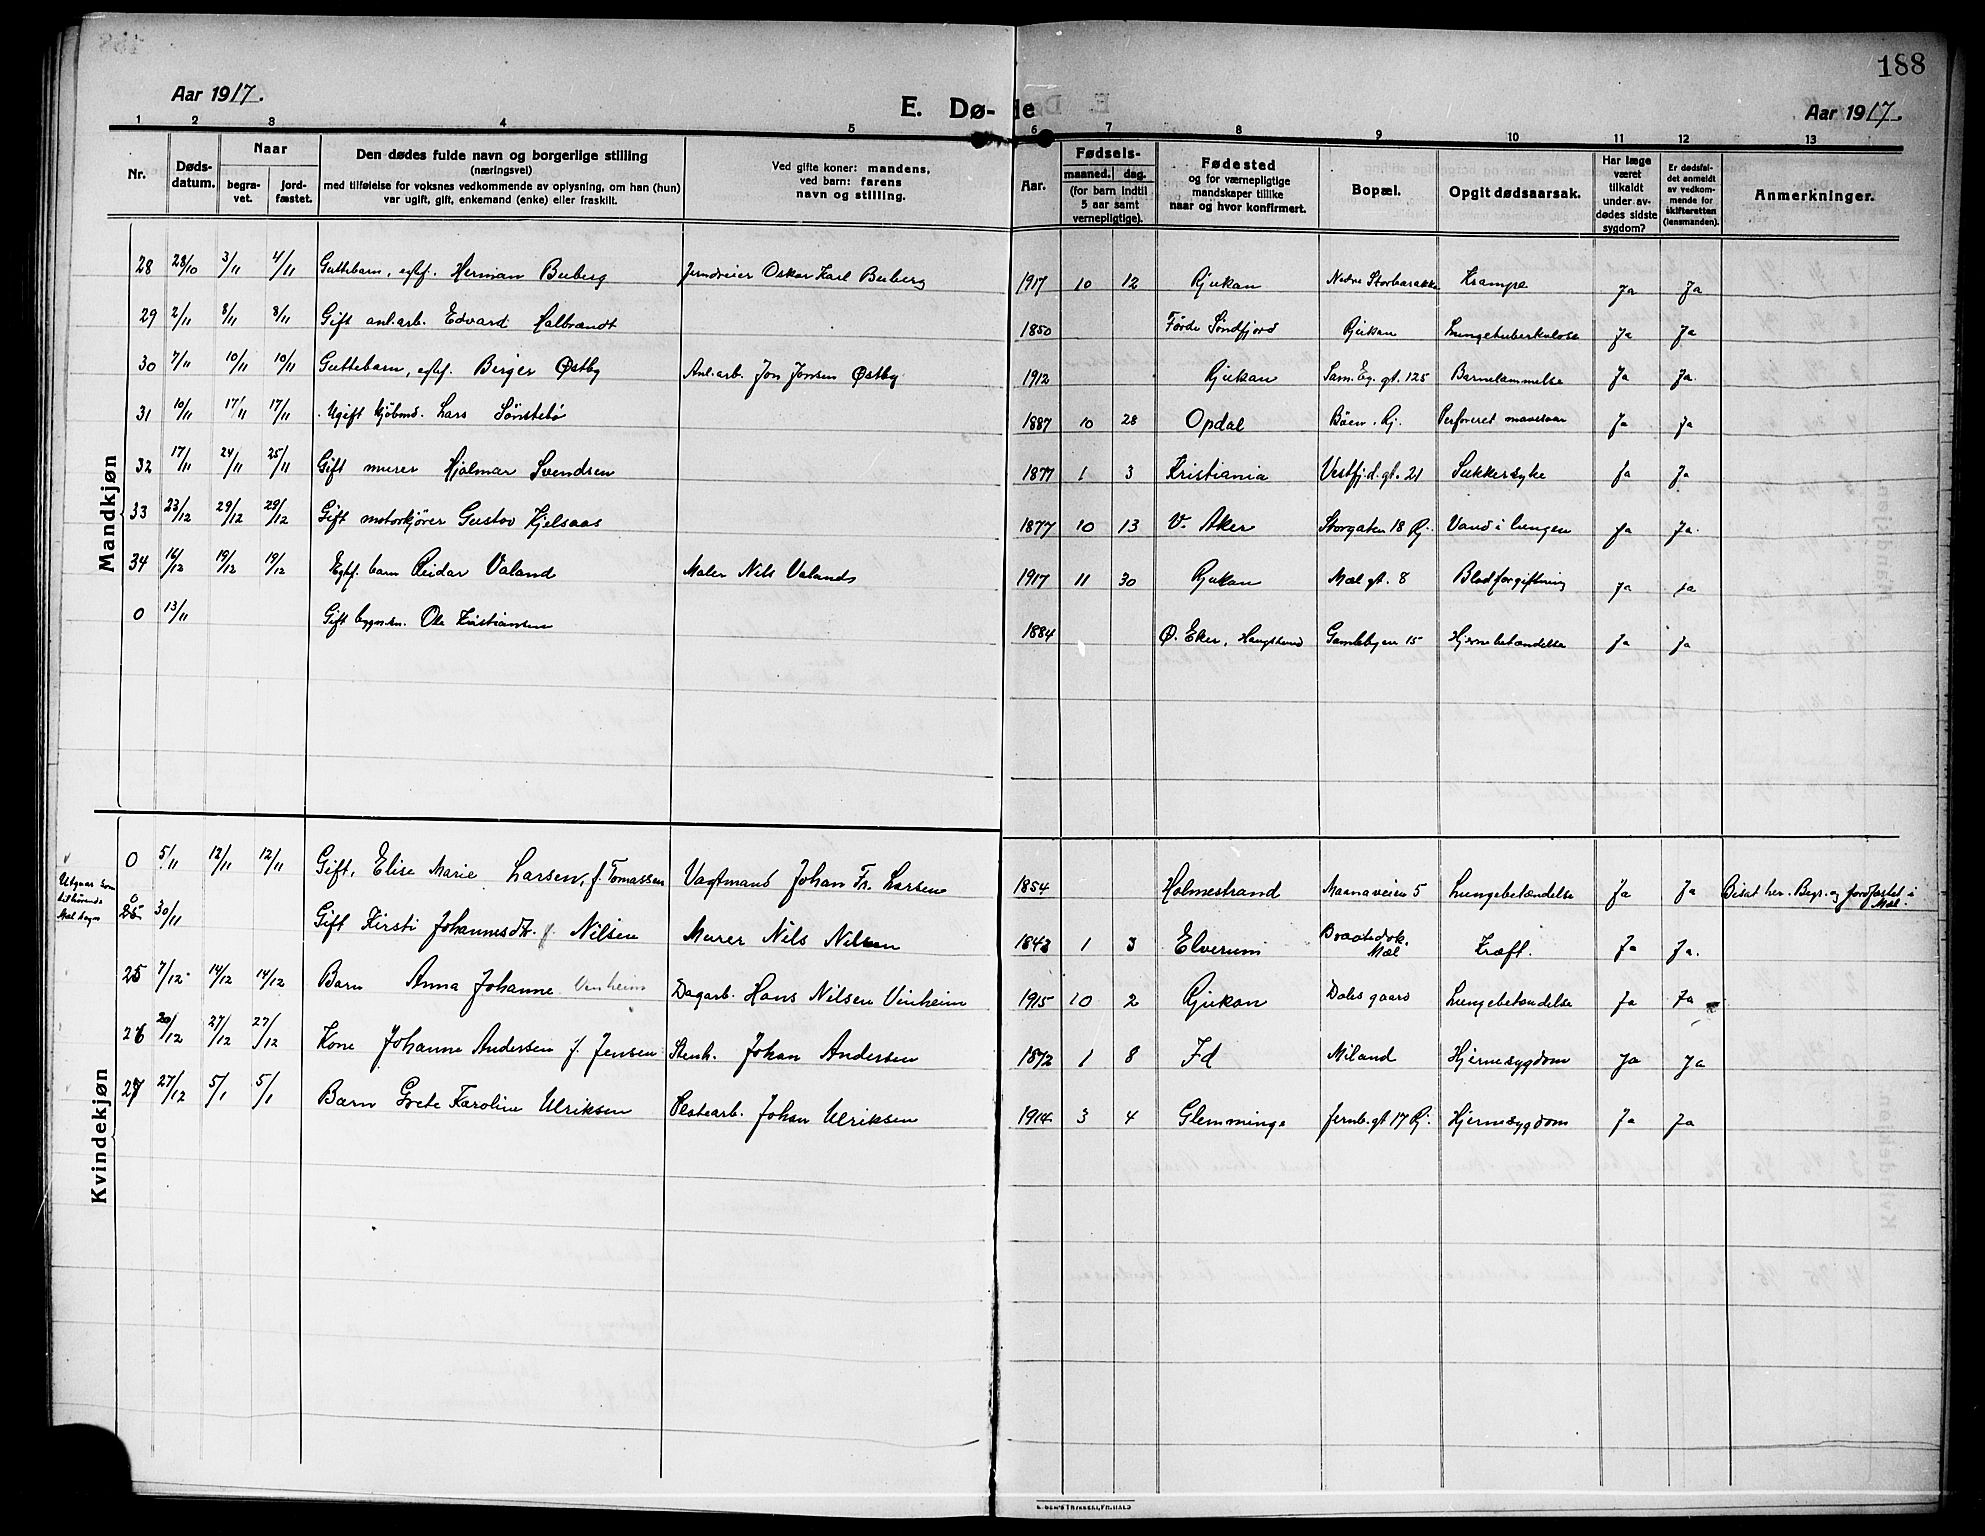 188
Aar 1917.
E. Dø-de
Aar 1917.
1 2 3 4 5 6 7 8 9 10 11 12 13
Nr.
Døds-datum.
Naar
begra-vet.
jord-fæstet.
Den dødes fulde navn og borgerlige stilling
(næringsvei)
med tilføielse for voksnes vedkommende av oplysning, om han (hun)
var ugift, gift, enkemand (enke) eller fraskilt.
Ved gifte koner: mandens,
ved barn: farens
navn og stilling.
Aar.
Fødsels-
maaned. dag.
(for barn indtil
5 aar samt
vernepligtige).
Fødested
og for værnepligtige
mandskaper tillike
naar og hvor konfirmert.
Bopæl.
Opgit dødsaarsak.
Har læge
været
tilkaldt
under av-
dødes sidste
sygdom?
Er dødsfal-
det anmeldt
av vedkom-
mende for
skifteretten
(lensmanden).
Anmerkninger.
Mandkjøn
28 28/10 3/11 4/11 Guttebarn, egtef. Herman Buberg Oskar Karl Buberg 1917 10 12 Rjukan Nedre Storbarakke Krampe Ja Ja
29 2/11 8/11 8/11 Gift anl.arb. Edvard Halbrandt 1850 Førde Søndfjord Rjukan Lungetuberkulose Ja Ja
30 7/11 10/11 10/11 Guttebarn, egtf. Birger Østby Anl.arb. Jon Jonsen Østby 1912 Rjukan Sam. Eg. gt. 125 Barnelammelse Ja Ja.
31 10/11 17/11 17/11 Ugift kjøbmd. Lars Sønstebø 1887 10 28 Opdal Bøen, Rj. Perforeret mavesaar Ja Ja
32 17/11 24/11 25/11 Gift murer Hjalmar Svendsen 1877 1 3 Kristiania Vestfj.d. gt. 21 Sukkersyke Ja Ja
33 23/12 29/12 29/12 Gift motorkjører Gustav Kjelsaas 1877 10 13 V. Aker Storgaten 18 Rj. Vand i lungen Ja Ja.
34 16/12 19/12 19/12 Egtf. barn Reidar Valand Maler Nils Valands 1917 11 30 Rjukan Mæl gt. 8 Blodforgiftning Ja Ja
0 13/11 Gift Ole Kristiansen 1884 Ø. Eker, Gamlebyen 15 Hjernebetændelse Ja Ja
Kvindekjøn
0 5/11 12/11 12/11 Gift, Elise Marie Larsen, f. Tomassen Vagtmand Johan Fr. Larsen 1854 Holmestrand Maanaveien 5 Lungebetændelse Ja Ja Bisat her. Begr. og jordfæstet i Mæl.
Utgaar som tilhørende Mæl sogn
0
25 30/11 Gift Kirsti Johannesdtr. f. Nilsen Murer Nils Nilsen 1843 1 3 Elverum Mæl Kræft. Ja Ja.
25 7/12 14/12 14/12 Barn Anna Johanne Vinheim Dagarb. Hans Nilsen Vinheim 1915 10 2 Rjukan Dales gaard Lungebetændelse Ja Ja
26 20/12 27/12 27/12 Kone Johanne Andersen f. Jensen Stenh. Johan Andersen 1872 1 8 Id Miland Hjernesygdom Ja Ja
27 27/12 5/1 5/1 Barn Grete Karoline Ulriksen Johan Ulriksen 1914 3 4 Glemminge Jernb.gt 17 Rj. Hjernesygdom Ja Ja